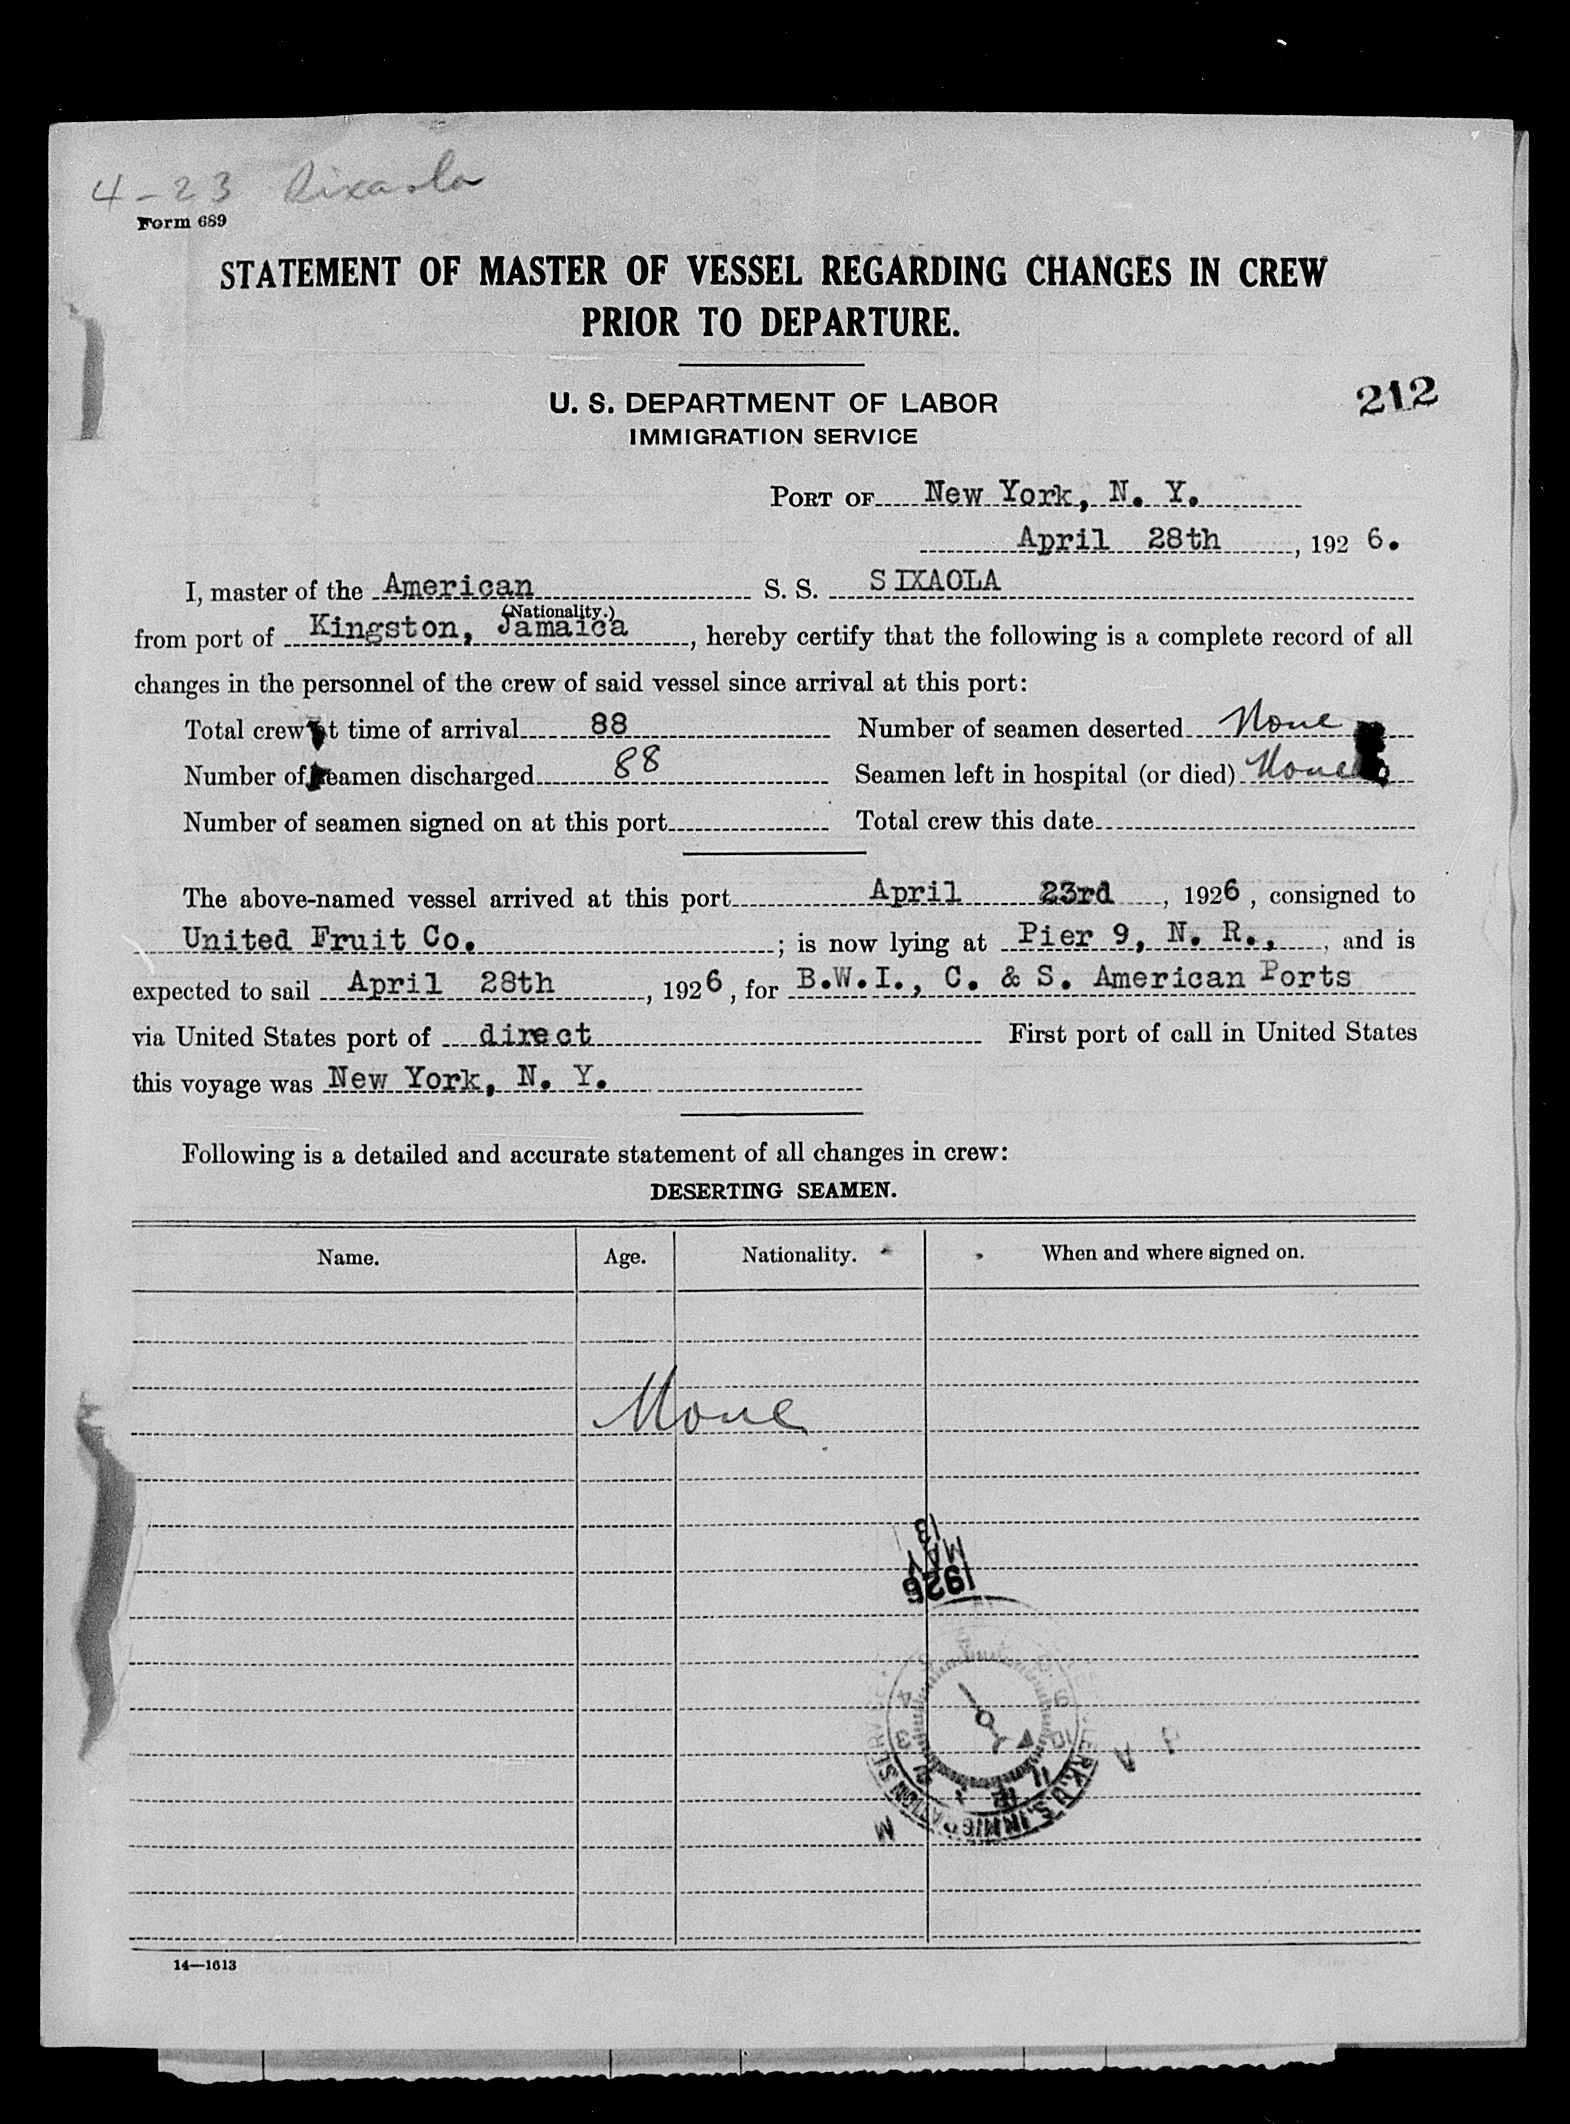 4-23 Sixaola
Form 689
STATEMENT OF MASTER OF VESSEL REGARDING CHANGES IN CREW
PRIOR TO DEPARTURE.
U. S. DEPARTMENT OF LABOR
212
IMMIGRATION SERVICE
PORT OF New York, N. Y.
April 28th, 192 6.
I, master of the American S. S. SIXAOLA
(Nationality.)
from port of Kingston, Jamaica, hereby certify that the following is a complete record of all
changes in the personnel of the crew of said vessel since arrival at this port:
Total crew at time of arrival 88 Number of seamen deserted None
Number of seamen discharged 88 Seamen left in hospital (or died) None
Number of seamen signed on at this port Total crew this date
The above-named vessel arrived at this port April 23rd, 1926, consigned to
United Fruit Co.; is now lying at Pier 9, N. R., , and is
expected to sail April 28th, 1926, for B.W.I., C. & S. American Ports
via United States port of direct First port of call in United States
this voyage was New York, N. Y.
Following is a detailed and accurate statement of all changes in crew:
DESERTING SEAMEN.
Name. Age. Nationality. When and where signed on.
None
13
MAY
1926
14—1613